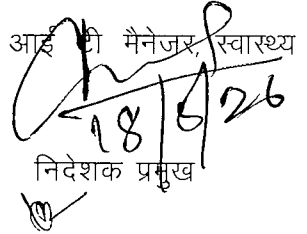 आई टी मैनेजर, स्वास्थ्य
18/6/26
निदेशक प्रमुख